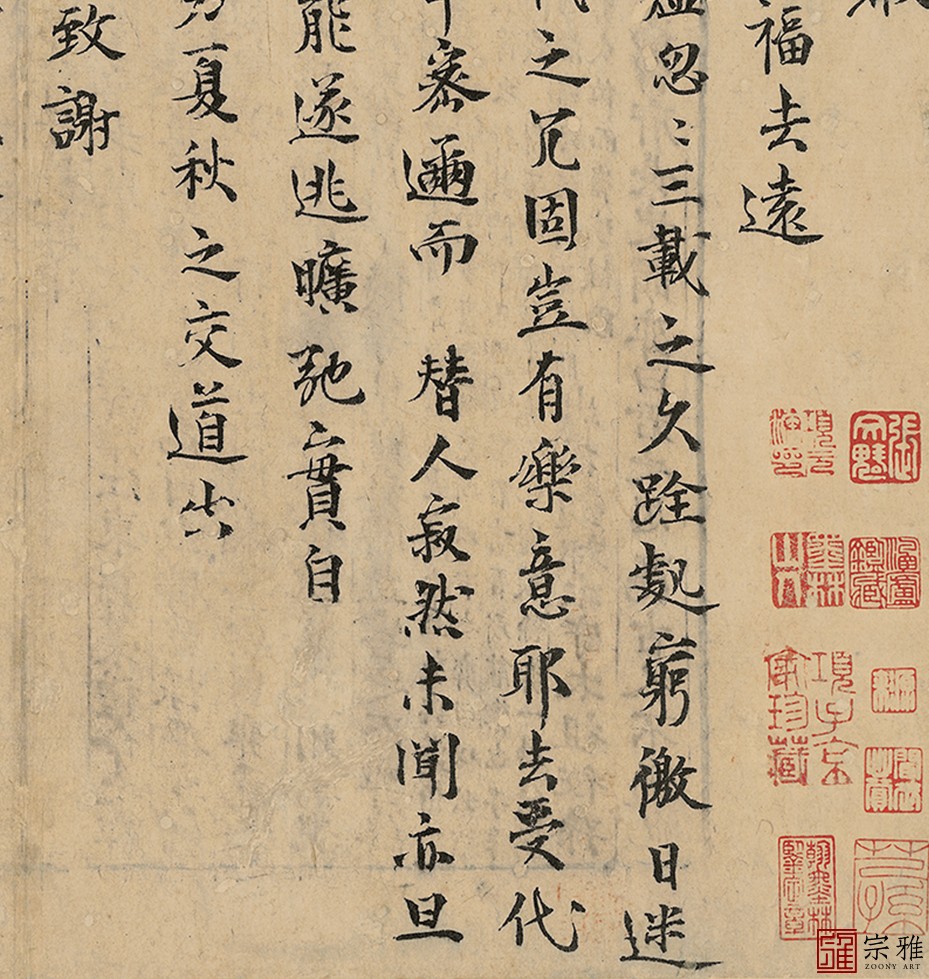 福去遠
忽〻三載之久跧䖏窮徼日迷
之咒固豈有樂意耶去受代
審邇而 替人寂然未聞亦旦
能遂逃曠弛實自
夏秋之交道出
致謝
項子京家珍藏
宗雅
ZOONY ART